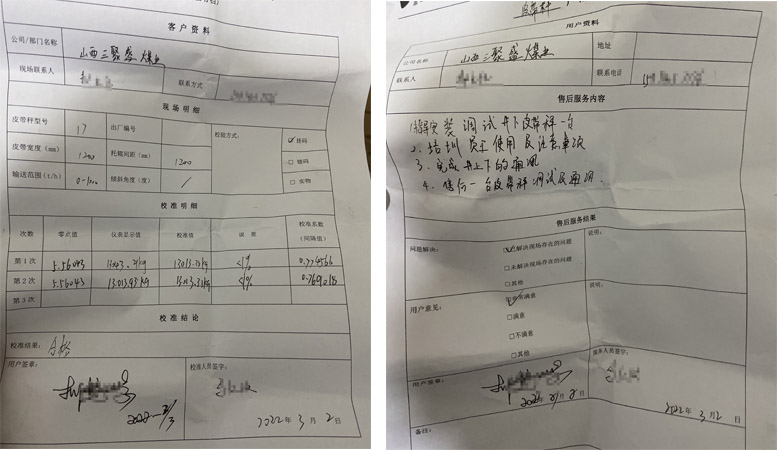 客户资料
公司/部门名称 山西三聚盛煤业
现场联系人 联系方式
现场明细
皮带秤型号 17 出厂编号 校验方式: 挂码
皮带宽度(mm) 1200 托辊间距(mm) 1200 □ 链码
输送范围(t/h) 0-1000 倾斜角度(度) / □ 实物
校准明细
次数 零点值 仪表显示值 校准值 误差 校准系数(间隔值)
第1次 5.56043 <1%
第2次 5.56043 13013.93kg <1%
第3次
校准结论
校准结果: 合格
用户签章: 校准人员签字:
2022年3月2日
用户资料
公司名称 山西三聚盛煤业 地址
联系人 联系电话
售后服务内容
安装调试井下皮带秤一台
2、培训员工使用及注意事项
3、完成井上下的通讯
4、一台皮带秤调试及通讯.
售后服务结果
问题解决: 已解决现场存在的问题 说明:
□未解决现场存在的问题
□其他
用户意见: 非常满意 说明:
□满意
□不满意
□其他
用户签章: 服务人员签字:
2022年3月2日
备注: